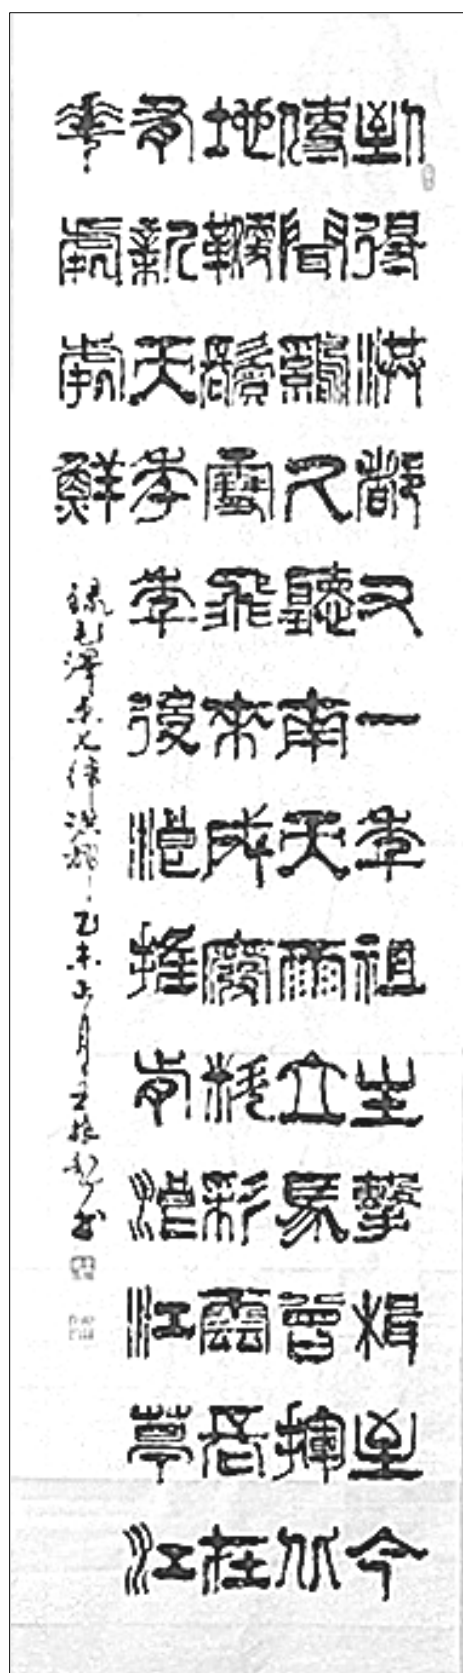 到得洪都又一年祖生擊楫至今
傳聞鷄久聽南天雨立馬曾揮北
地鞭鬢雪飛來成廢料彩雲長在
有新天年年後浪推前浪江草江
花處處鮮
録毛澤东七律洪都乙未月王振书